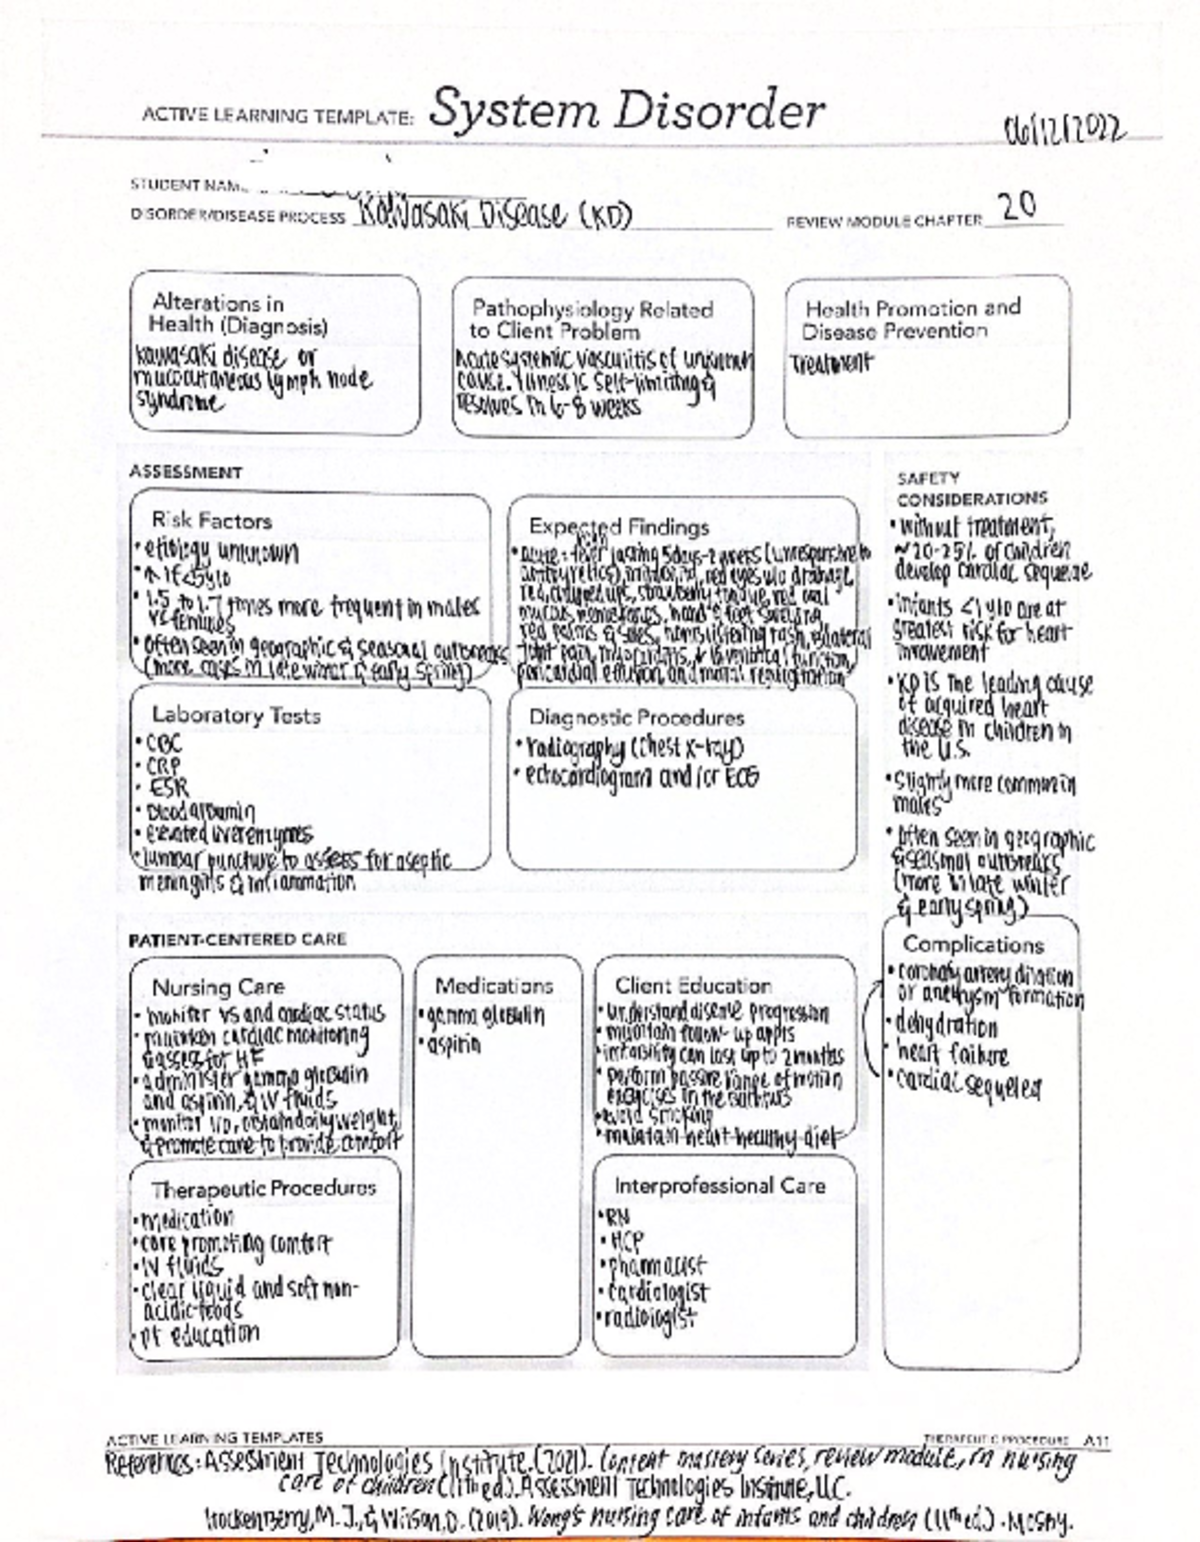 ACTIVE LEARNING TEMPLATE: System Disorder
06/12/2022
STUDENT NAM
DISORDER/DISEASE PROCESS Kawasaki Disease (KD)
REVIEW MODULE CHAPTER 20
Alterations in
Health (Diagnosis)
kawasaki disease or
mucocutaneous lymph node
syndrome
Pathophysiology Related
to Client Problem
Acute systemic vasculitis of unknown
cause. Illness is self-limiting &
resolves in 6-8 weeks
Health Promotion and
Disease Prevention
Treatment
ASSESSMENT
Risk Factors
• etiology unknown
• ↑ if <5y/o
• 1.5 to 1.7 times more frequent in males
vs females
• often seen in geographic & seasonal outbreaks
(more cases in late winter & early spring)
Expected Findings
• acute = fever lasting 5days-2 weeks (unresponsive to
antipyretics), red eyes w/o drainage,
red, strawberry tongue, red oral
mucous membranes, hand & feet swelling
red palms & soles, nonblistering rash, bilateral
joint pain, myocarditis, ↓ ventrical function,
pericardial effusion, and mitral regurgitation
Laboratory Tests
• CBC
• CRP
• ESR
• blood albumin
• elevated liver enzymes
• lumbar puncture to assess for aseptic
meningitis & inflammation
Diagnostic Procedures
• radiography (chest x-ray)
• echocardiogram and/or ECG
SAFETY
CONSIDERATIONS
• without treatment,
~20-25% of children
develop cardiac sequelae
• infants <1 y/o are at
greatest risk for heart
involvement
• KD is the leading cause
of acquired heart
disease in children in
the U.S.
• slightly more common in
males
• often seen in geographic
& seasonal outbreaks
(more in late winter
& early spring)
Complications
• coronary artery dilation
or aneurysm formation
• dehydration
• heart failure
• cardiac sequelea
PATIENT-CENTERED CARE
Nursing Care
• monitor VS and cardiac status
• maintain cardiac monitoring
& assess for HF
• administer gamma globulin
and aspirin, & IV fluids
• monitor I/O, obtain daily weight,
& promote care to provide comfort
Medications
• gamma globulin
• aspirin
Client Education
• understand disease progression
• maintain follow-up appts
• irritability can last up to 2 months
• perform passive range of motion
exercises in the
• avoid smoking
• maintain heart healthy diet
Therapeutic Procedures
• medication
• care promoting comfort
• IV fluids
• clear liquid and soft non-
acidic foods
• pt education
Interprofessional Care
• RN
• HCP
• pharmacist
• cardiologist
• radiologist
ACTIVE LEARNING TEMPLATES
THERAPEUTIC PROCEDURE A11
References: Assessment Technologies Institute. (2021). Content mastery series, review module, rn nursing
care of children (11th ed.). Assessment Technologies Institute, LLC.
Hockenberry, M. J., & Wilson, D. (2019). Wong's nursing care of infants and children (11th ed.). Mosby.